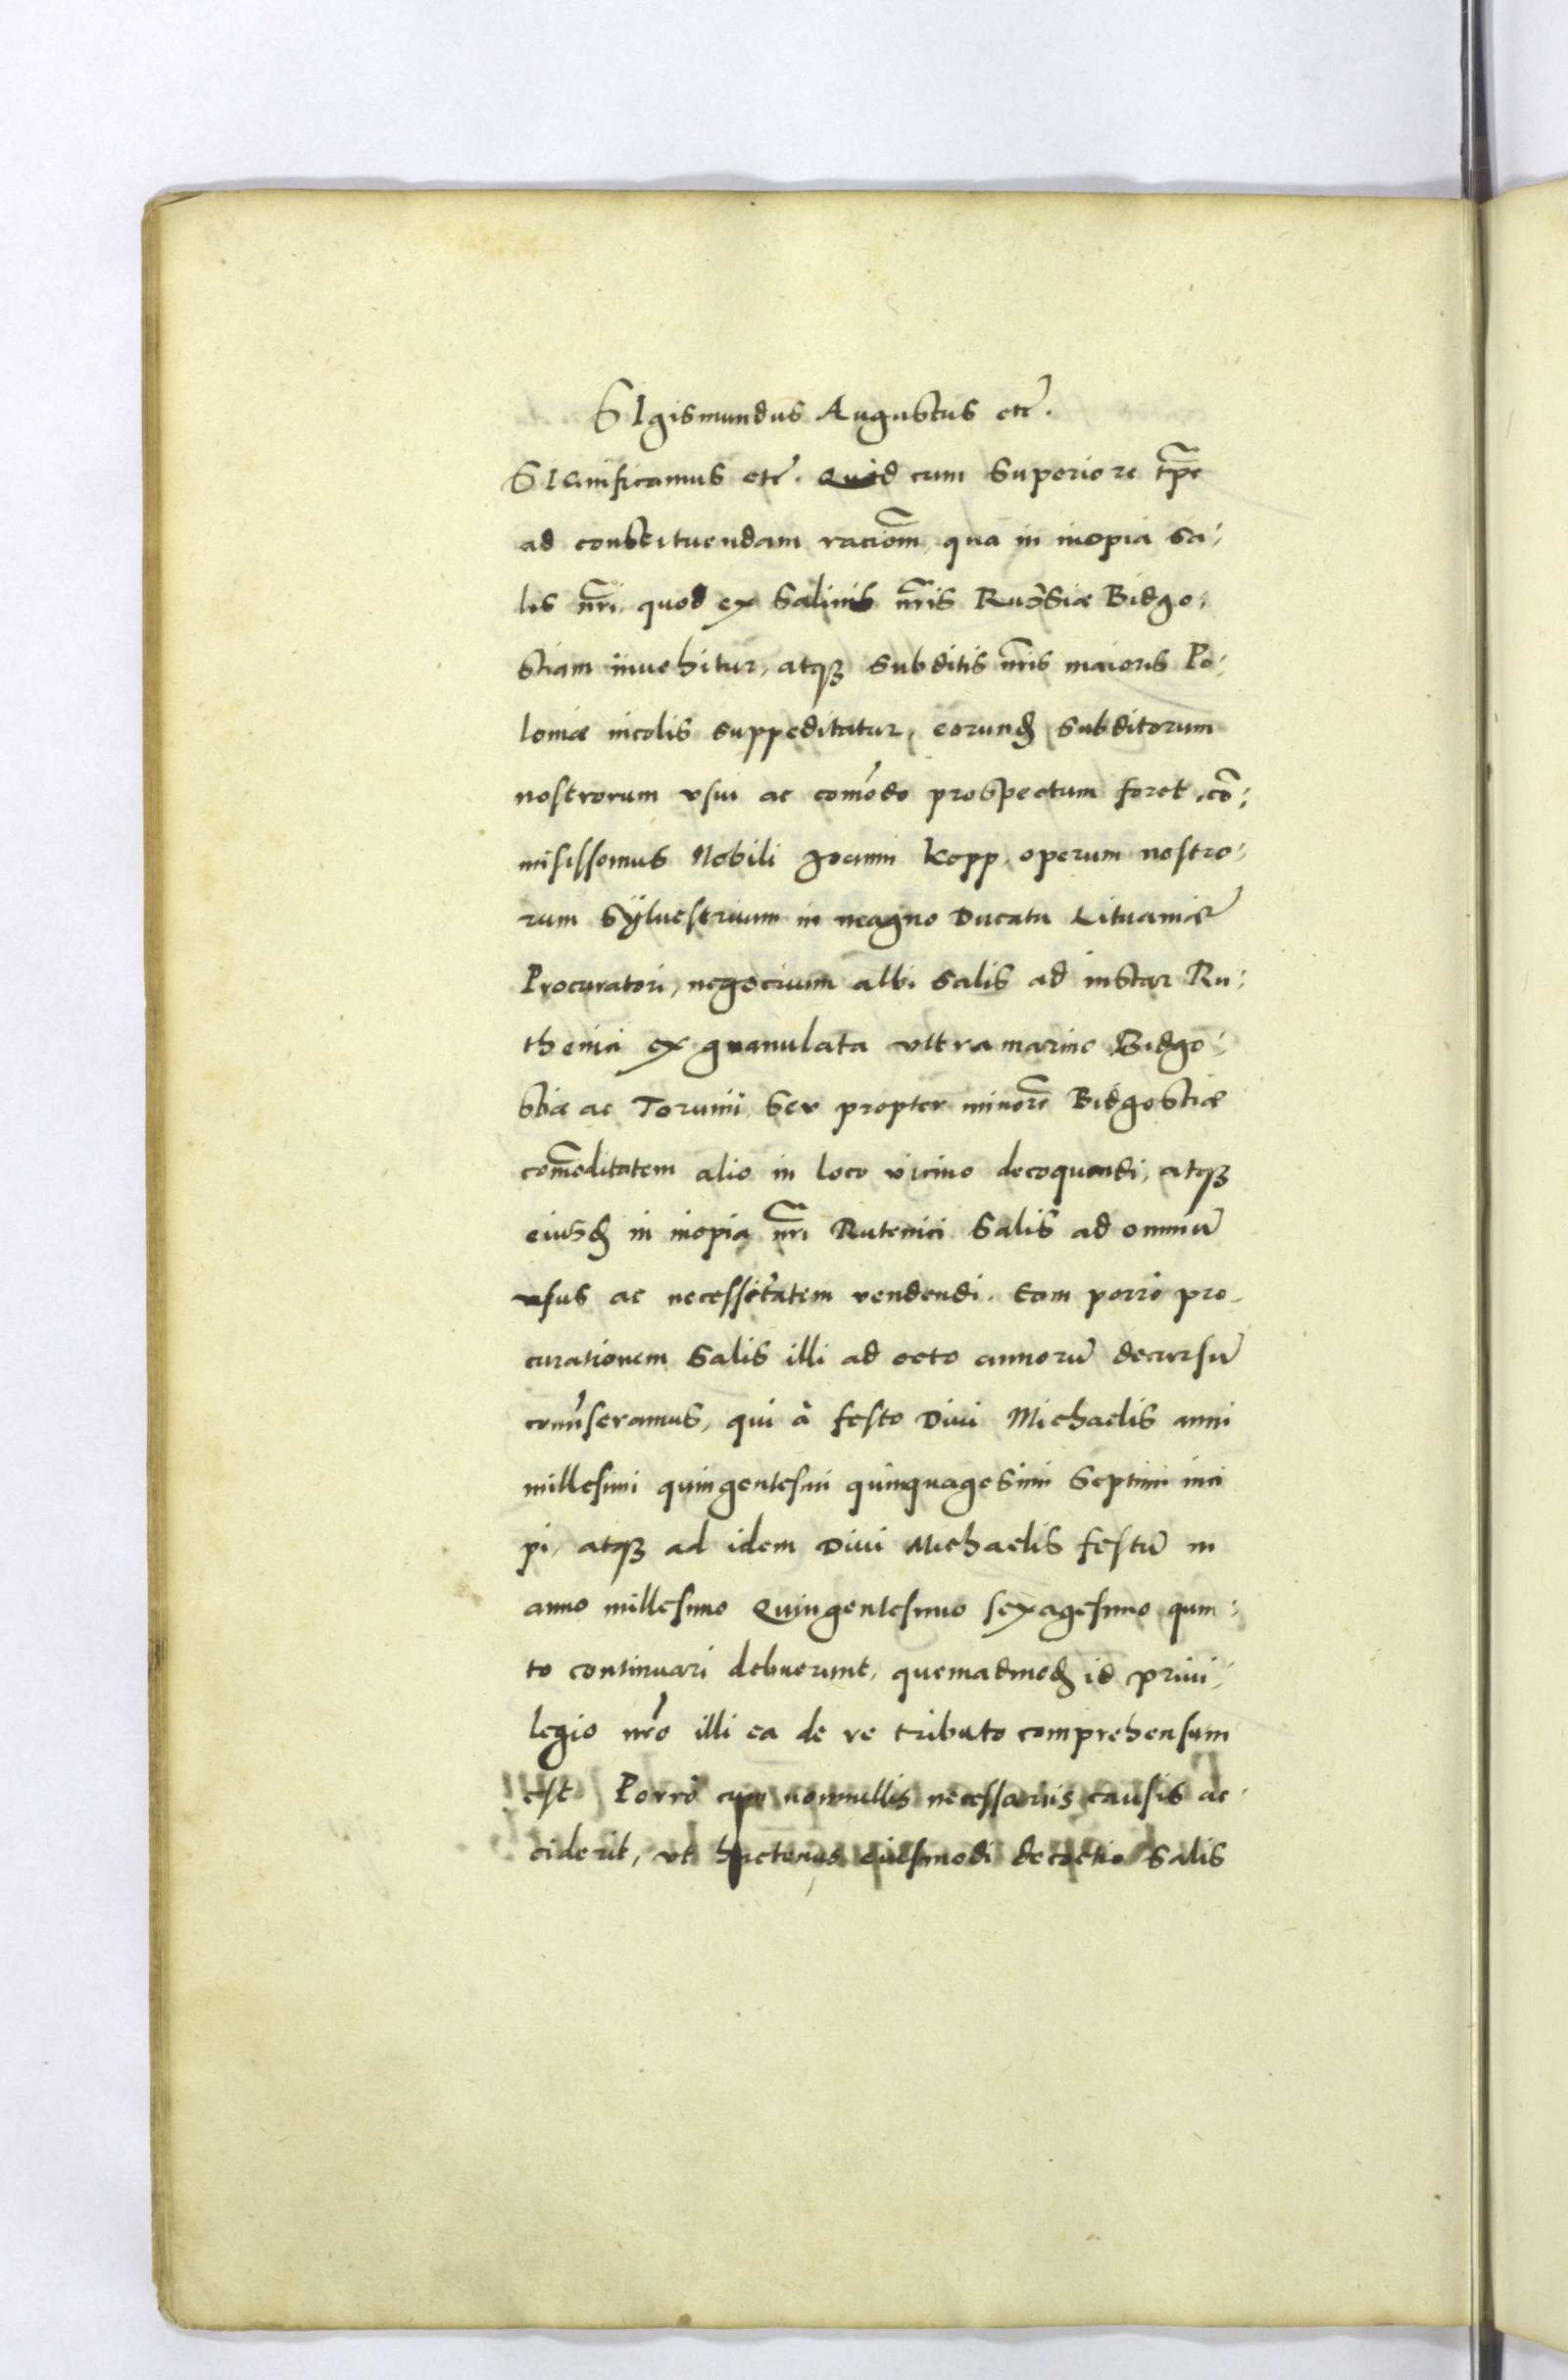 SIgismundus Augustus etc̄.
SIGnificamus etc̄. Quòd cum Superiore tp̄e
ad constituendam racionm̄, qua in inopia sa:
lis nr̄i, quod ex Salinis nr̄is Russiæ Bidgo:
stiam inuehitur, atqꝫ subditis nr̄is maioris Po:
loniæ incolis suppeditatur, eorund subditorum
nostrorum vsui ac com̄odo prospectum foret, co̅:
misissemus Nobili Joanni Kopp, operum nostro:
rum Sÿluestrium in magno Ducatu Lituaniæ
Procuratori, negocium albi salis ad instar Ru:
thenici ex granulata vltramarino Bidgo:
stiæ ac Torunii, Seu propter minorē Bidgostiæ
com̄oditatem alio in loco vicino decoquendi, atqꝫ
eiusd in inopia nr̄i Rutenici Salis ad omniū
vsus ac necessitatem vendendi. Eam porrò pro:
curationem Salis illi ad octo annorū decursū
com̄iseramus, qui à festo Diui Michaelis anni
millesimi quingentesimi quinquagesimi Septimi inci
pi, atqꝫ ad idem Diui Michaelis festū in
anno millesimo Quingentesimo sexagesimo quin:
to continuari debuerunt, quemadmod id priui:
legio nr̄o illi ea de re tributo comprehensum
est. Porrò cum nonnullis necessariis causis ac:
ciderit, vt hactenus eiusmodi decoctio Salis